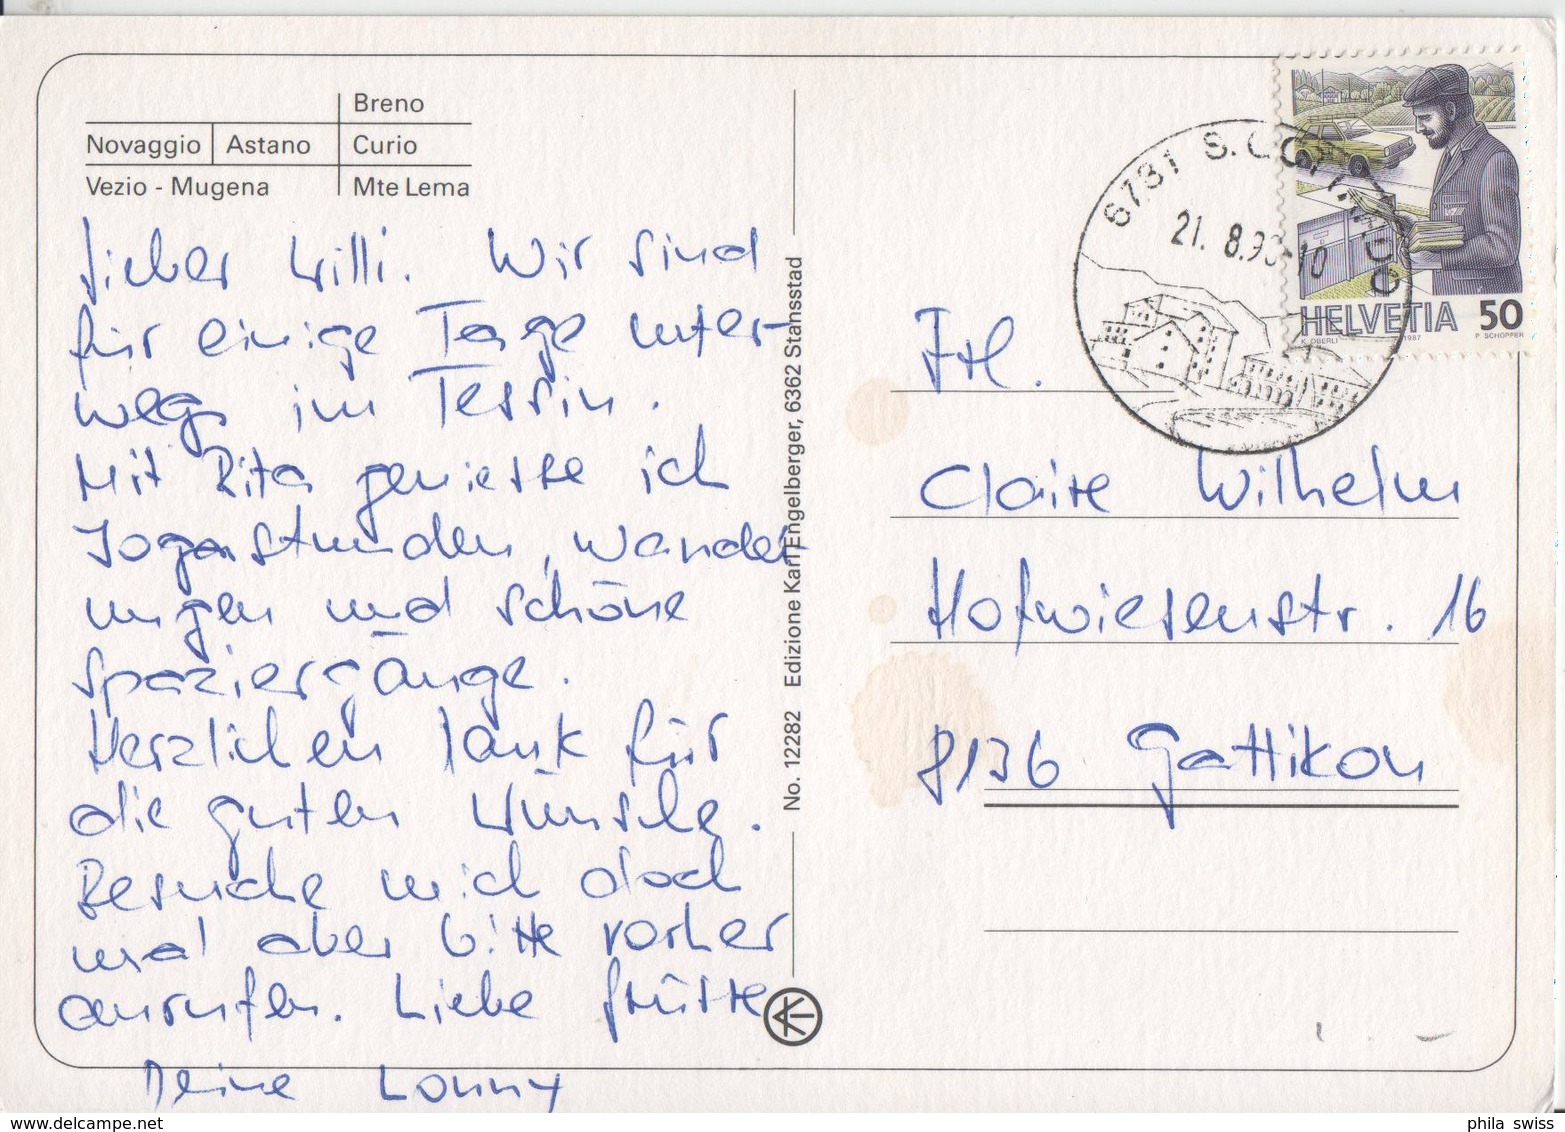 Breno
Novaggio Astano Curio
Vezio - Mugena Mte Lema
Lieber Willi. Wir sind
für einige Tage unter-
wegs im Tessin.
Mit Rita geniesse ich
Jogastunden, wander-
ungen und schöne
Spaziergänge.
Herzlichen Dank für
die guten Wünsche.
Besuche mich doch
mal aber bitte vorher
anrufen. Liebe Grüsse
Deine Lonny
No. 12282 Edizione Karl Engelberger, 6362 Stansstad
6781 S.
21. 8.9 -10
HELVETIA 50
K. OBERLI 1987 P. SCHOPFER
Frl.
Claire Wilhelm
Hofwiesenstr. 16
8136 Gattikon
www.delcampe.net
phila swiss